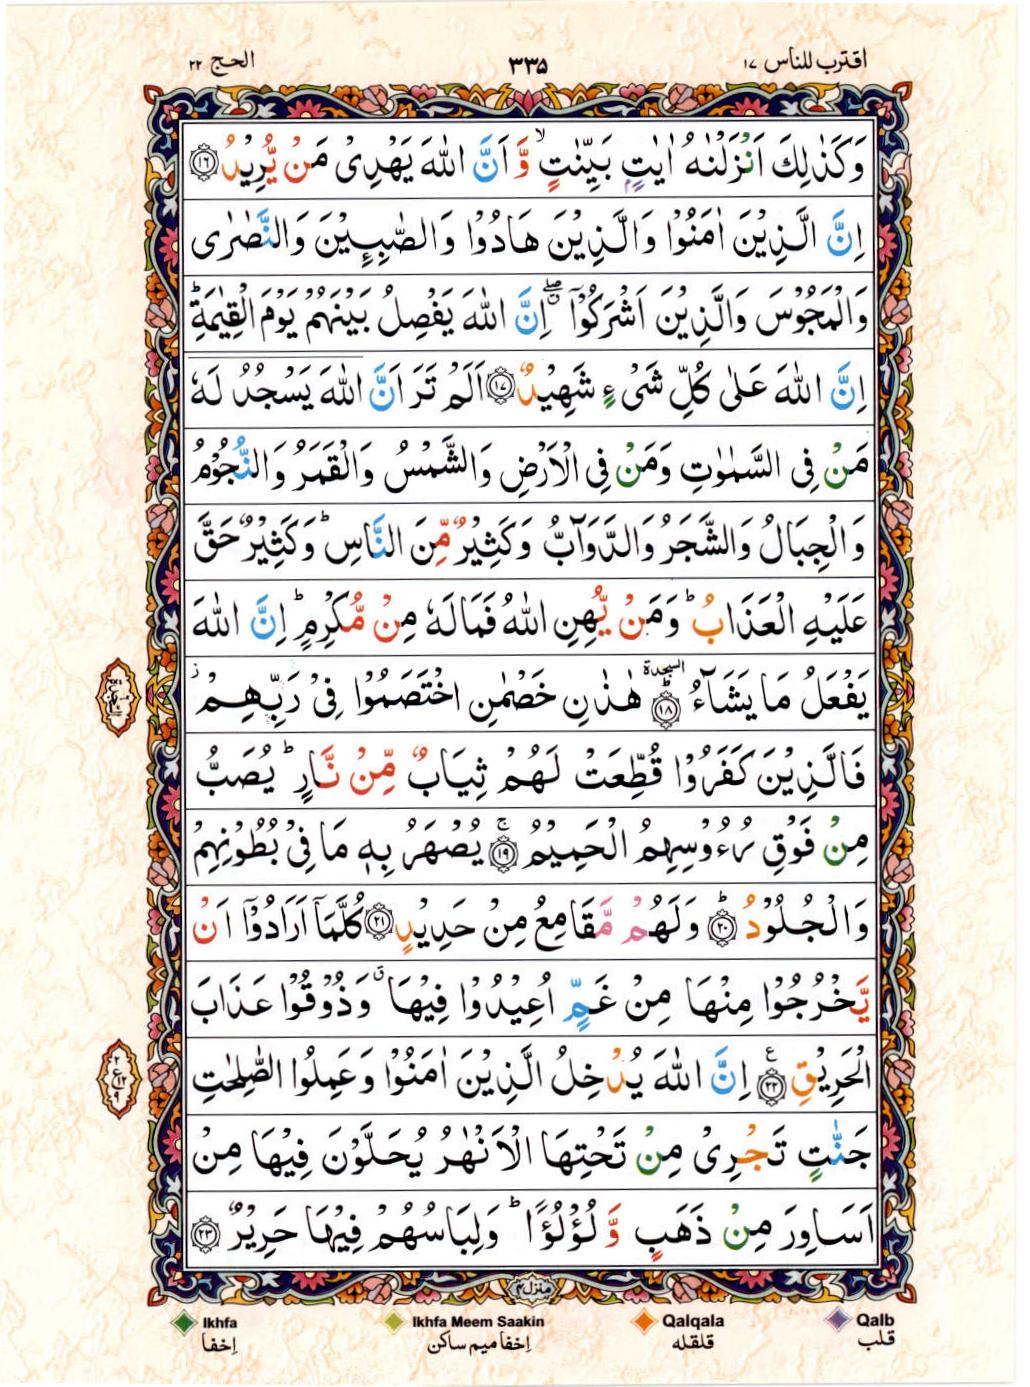 اقترب للناس ١٧
٣٣٥
الحج ٢٢
وَكَذٰلِكَ اَنْزَلْنٰهُ اٰيٰتٍۭ بَيِّنٰتٍۙ وَّ اَنَّ اللّٰهَ يَهْدِىْ مَنْ يُّرِيْدُ ۝١٦
اِنَّ الَّذِيْنَ اٰمَنُوْا وَالَّذِيْنَ هَادُوْا وَالصّٰبِـِٕيْنَ وَالنَّصٰرٰى
وَالْمَجُوْسَ وَالَّذِيْنَ اَشْرَكُوْۤا ۖۗ اِنَّ اللّٰهَ يَفْصِلُ بَيْنَهُمْ يَوْمَ الْقِيٰمَةِؕ
اِنَّ اللّٰهَ عَلٰى كُلِّ شَىْءٍ شَهِيْدٌ ۝١٧ اَلَمْ تَرَ اَنَّ اللّٰهَ يَسْجُدُ لَهٗ
مَنْ فِى السَّمٰوٰتِ وَمَنْ فِى الْاَرْضِ وَالشَّمْسُ وَالْقَمَرُ وَالنُّجُوْمُ
وَالْجِبَالُ وَالشَّجَرُ وَالدَّوَآبُّ وَكَثِيْرٌ مِّنَ النَّاسِؕ وَكَثِيْرٌ حَقَّ
عَلَيْهِ الْعَذَابُؕ وَمَنْ يُّهِنِ اللّٰهُ فَمَا لَهٗ مِنْ مُّكْرِمٍؕ اِنَّ اللّٰهَ
يَفْعَلُ مَا يَشَآءُ ؕ ۝١٨ السجدة هٰذٰنِ خَصْمٰنِ اخْتَصَمُوْا فِىْ رَبِّهِمْؗ
السجدة
فَالَّذِيْنَ كَفَرُوْا قُطِّعَتْ لَهُمْ ثِيَابٌ مِّنْ نَّارٍؕ يُصَبُّ
مِنْ فَوْقِ رُءُوْسِهِمُ الْحَمِيْمُ ۚ۝١٩ يُصْهَرُ بِهٖ مَا فِىْ بُطُوْنِهِمْ
وَالْجُلُوْدُ ؕ۝٢٠ وَلَهُمْ مَّقَامِعُ مِنْ حَدِيْدٍ ۝٢١ كُلَّمَاۤ اَرَادُوْۤا اَنْ
يَّخْرُجُوْا مِنْهَا مِنْ غَمٍّ اُعِيْدُوْا فِيْهَاۗ وَذُوْقُوْا عَذَابَ
الْحَرِيْقِ ۝٢٢ ع اِنَّ اللّٰهَ يُدْخِلُ الَّذِيْنَ اٰمَنُوْا وَعَمِلُوا الصّٰلِحٰتِ
جَنّٰتٍ تَجْرِىْ مِنْ تَحْتِهَا الْاَنْهٰرُ يُحَلَّوْنَ فِيْهَا مِنْ
اَسَاوِرَ مِنْ ذَهَبٍ وَّ لُؤْلُؤًاؕ وَلِبَاسُهُمْ فِيْهَا حَرِيْرٌ ۝٢٣
منزل ٤
Ikhfa Ikhfa Meem Saakin Qalqala Qalb
إخفا إخفا ميم ساكن قلقله قلب